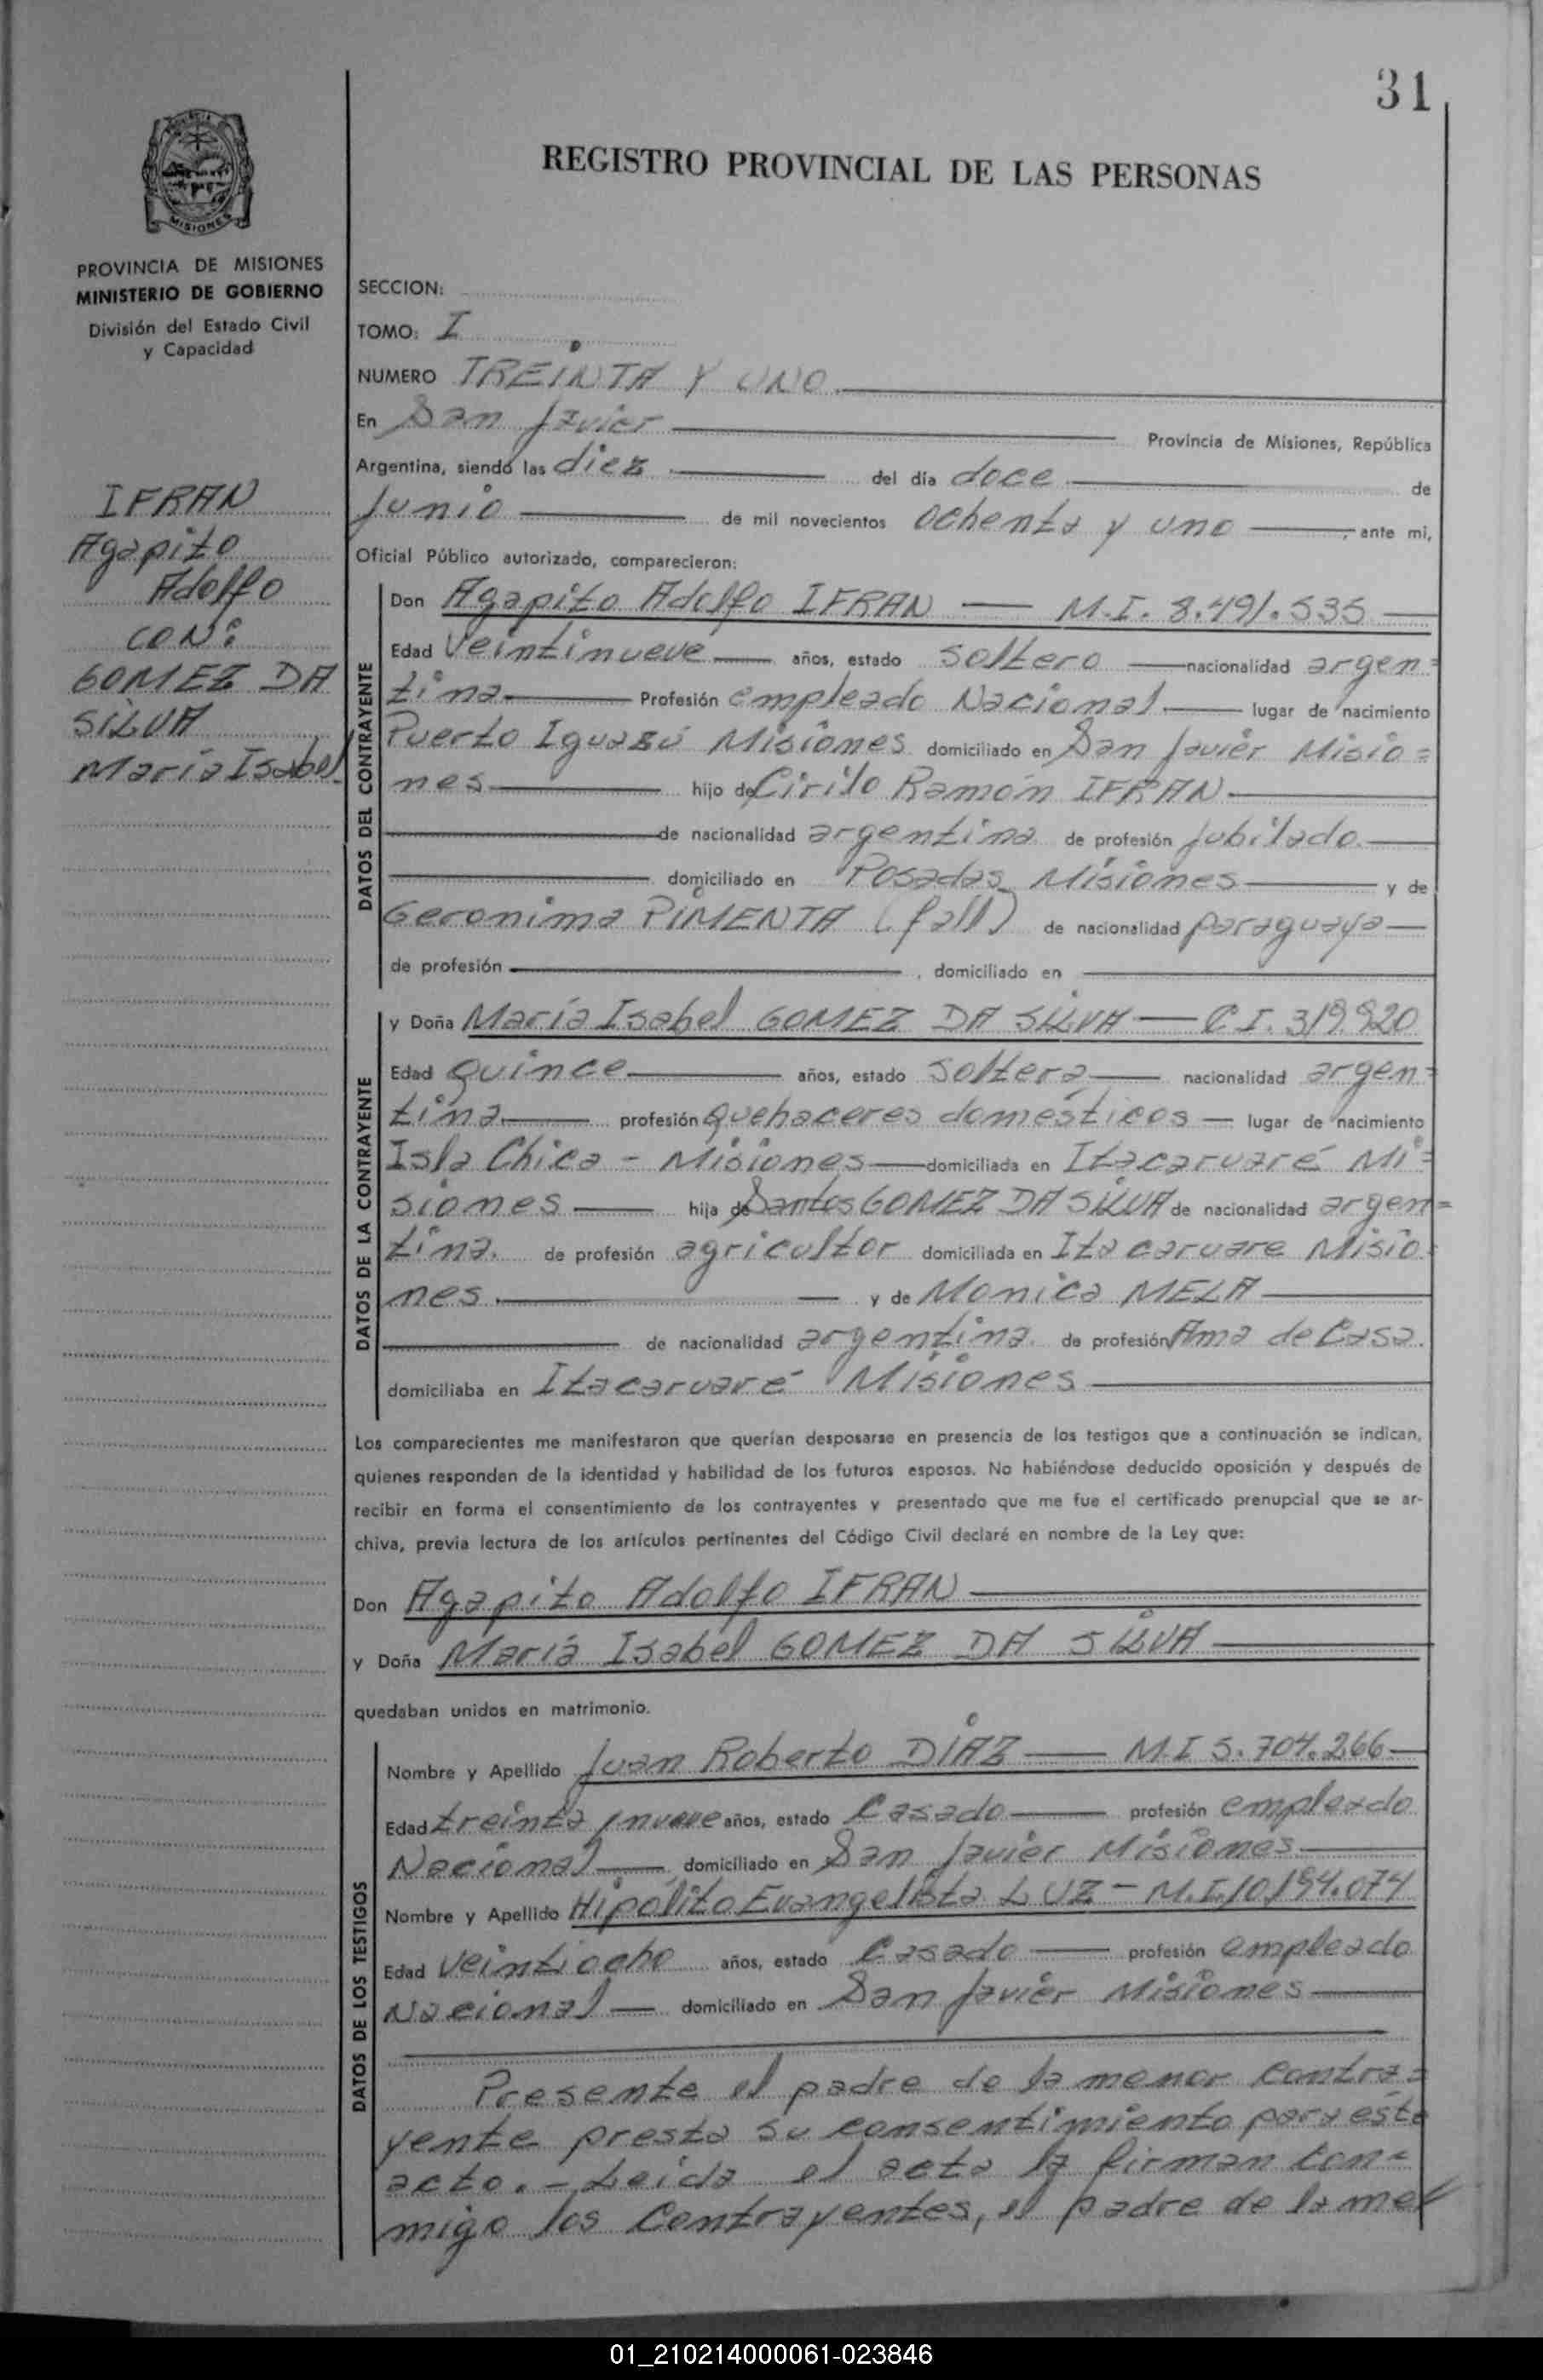 31
REGISTRO PROVINCIAL DE LAS PERSONAS
MISIONES
PROVINCIA DE MISIONES
MINISTERIO DE GOBIERNO
División del Estado Civil
y Capacidad
IFRAN
Agapito
Adolfo
CON:
GOMEZ DA
SILVA
María Isabel
SECCION:
TOMO: I
NUMERO TREINTA Y UNO
En San Javier Provincia de Misiones, República
Argentina, siendo las diez del día doce de
Junio de mil novecientos ochenta y uno, ante mi,
Oficial Público autorizado, comparecieron:
DATOS DEL CONTRAYENTE
Don Agapito Adolfo IFRAN — M.I. 8.491.535
Edad Veintinueve años, estado soltero nacionalidad argen=
tina Profesión empleado Nacional lugar de nacimiento
Puerto Iguazú Misiones domiciliado en San Javier Misio=
nes hijo de Cirilo Ramón IFRAN
de nacionalidad argentina de profesión jubilado
domiciliado en Posadas Misiones y de
Geronima PIMENTA (fall) de nacionalidad paraguaya
de profesión , domiciliado en
DATOS DE LA CONTRAYENTE
y Doña María Isabel GOMEZ DA SILVA — C.I. 319.920
Edad quince años, estado soltera nacionalidad argen=
tina profesión quehaceres domésticos lugar de nacimiento
Isla Chica - Misiones domiciliada en Itacaruaré Mi=
siones hija de Santos GOMEZ DA SILVA de nacionalidad argen=
tina. de profesión agricultor domiciliada en Itacaruare Misio=
nes y de Monica MELA
de nacionalidad argentina de profesión Ama de Casa.
domiciliaba en Itacaruaré Misiones
Los comparecientes me manifestaron que querían desposarse en presencia de los testigos que a continuación se indican,
quienes responden de la identidad y habilidad de los futuros esposos. No habiéndose deducido oposición y después de
recibir en forma el consentimiento de los contrayentes y presentado que me fue el certificado prenupcial que se ar-
chiva, previa lectura de los artículos pertinentes del Código Civil declaré en nombre de la Ley que:
Don Agapito Adolfo IFRAN
y Doña María Isabel GOMEZ DA SILVA
quedaban unidos en matrimonio.
DATOS DE LOS TESTIGOS
Nombre y Apellido Juan Roberto DIAZ — M.I 5.704.266
Edad treinta y nueve años, estado Casado profesión empleado
Nacional domiciliado en San Javier Misiones
Nombre y Apellido Hipólito Evangelista LUZ - M.I. 10.194.074
Edad veintiocho años, estado Casado profesión empleado
Nacional domiciliado en San Javier Misiones
Presente el padre de la menor contra=
yente presta su consentimiento para este
acto. - Leída el acta la firman con=
migo los Contrayentes, el padre de la me
01_210214000061-023846